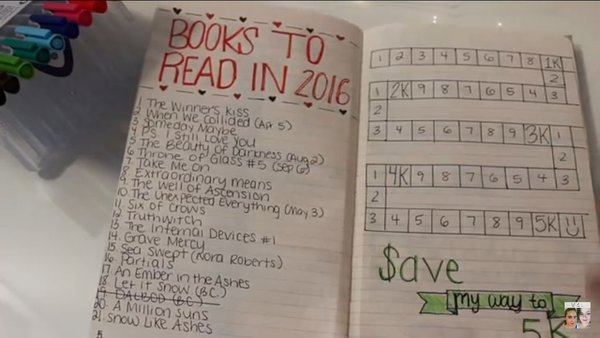 BOOKS TO
READ IN 2016
1. The Winner's Kiss
2. When We Collided (Apr 5)
3. Someday Maybe
4. P.S. I Still Love You
5. The Beauty of Darkness (Aug 2)
6. Throne of Glass #5 (Sep 6)
7. Take Me On
8. Extraordinary means
9. The Well of Ascension
10. The Unexpected Everything (May 3)
11. Six of Crows
12. Truthwitch
13. The Internal Devices #1
14. Grave Mercy
15. Sea Swept (Nora Roberts)
16. Partials
17. An Ember in the Ashes
18. Let it Snow (B.C.)
19. (B.C.)
20. A Million Suns
21. Snow Like Ashes
1 2 3 4 5 6 7 8 1K
2
1 2K 9 8 7 6 5 4 3
2
3 4 5 6 7 8 9 3K 1
2
1 4K 9 8 7 6 5 4 3
2
3 4 5 6 7 8 9 5K
$ave
my way to
5K